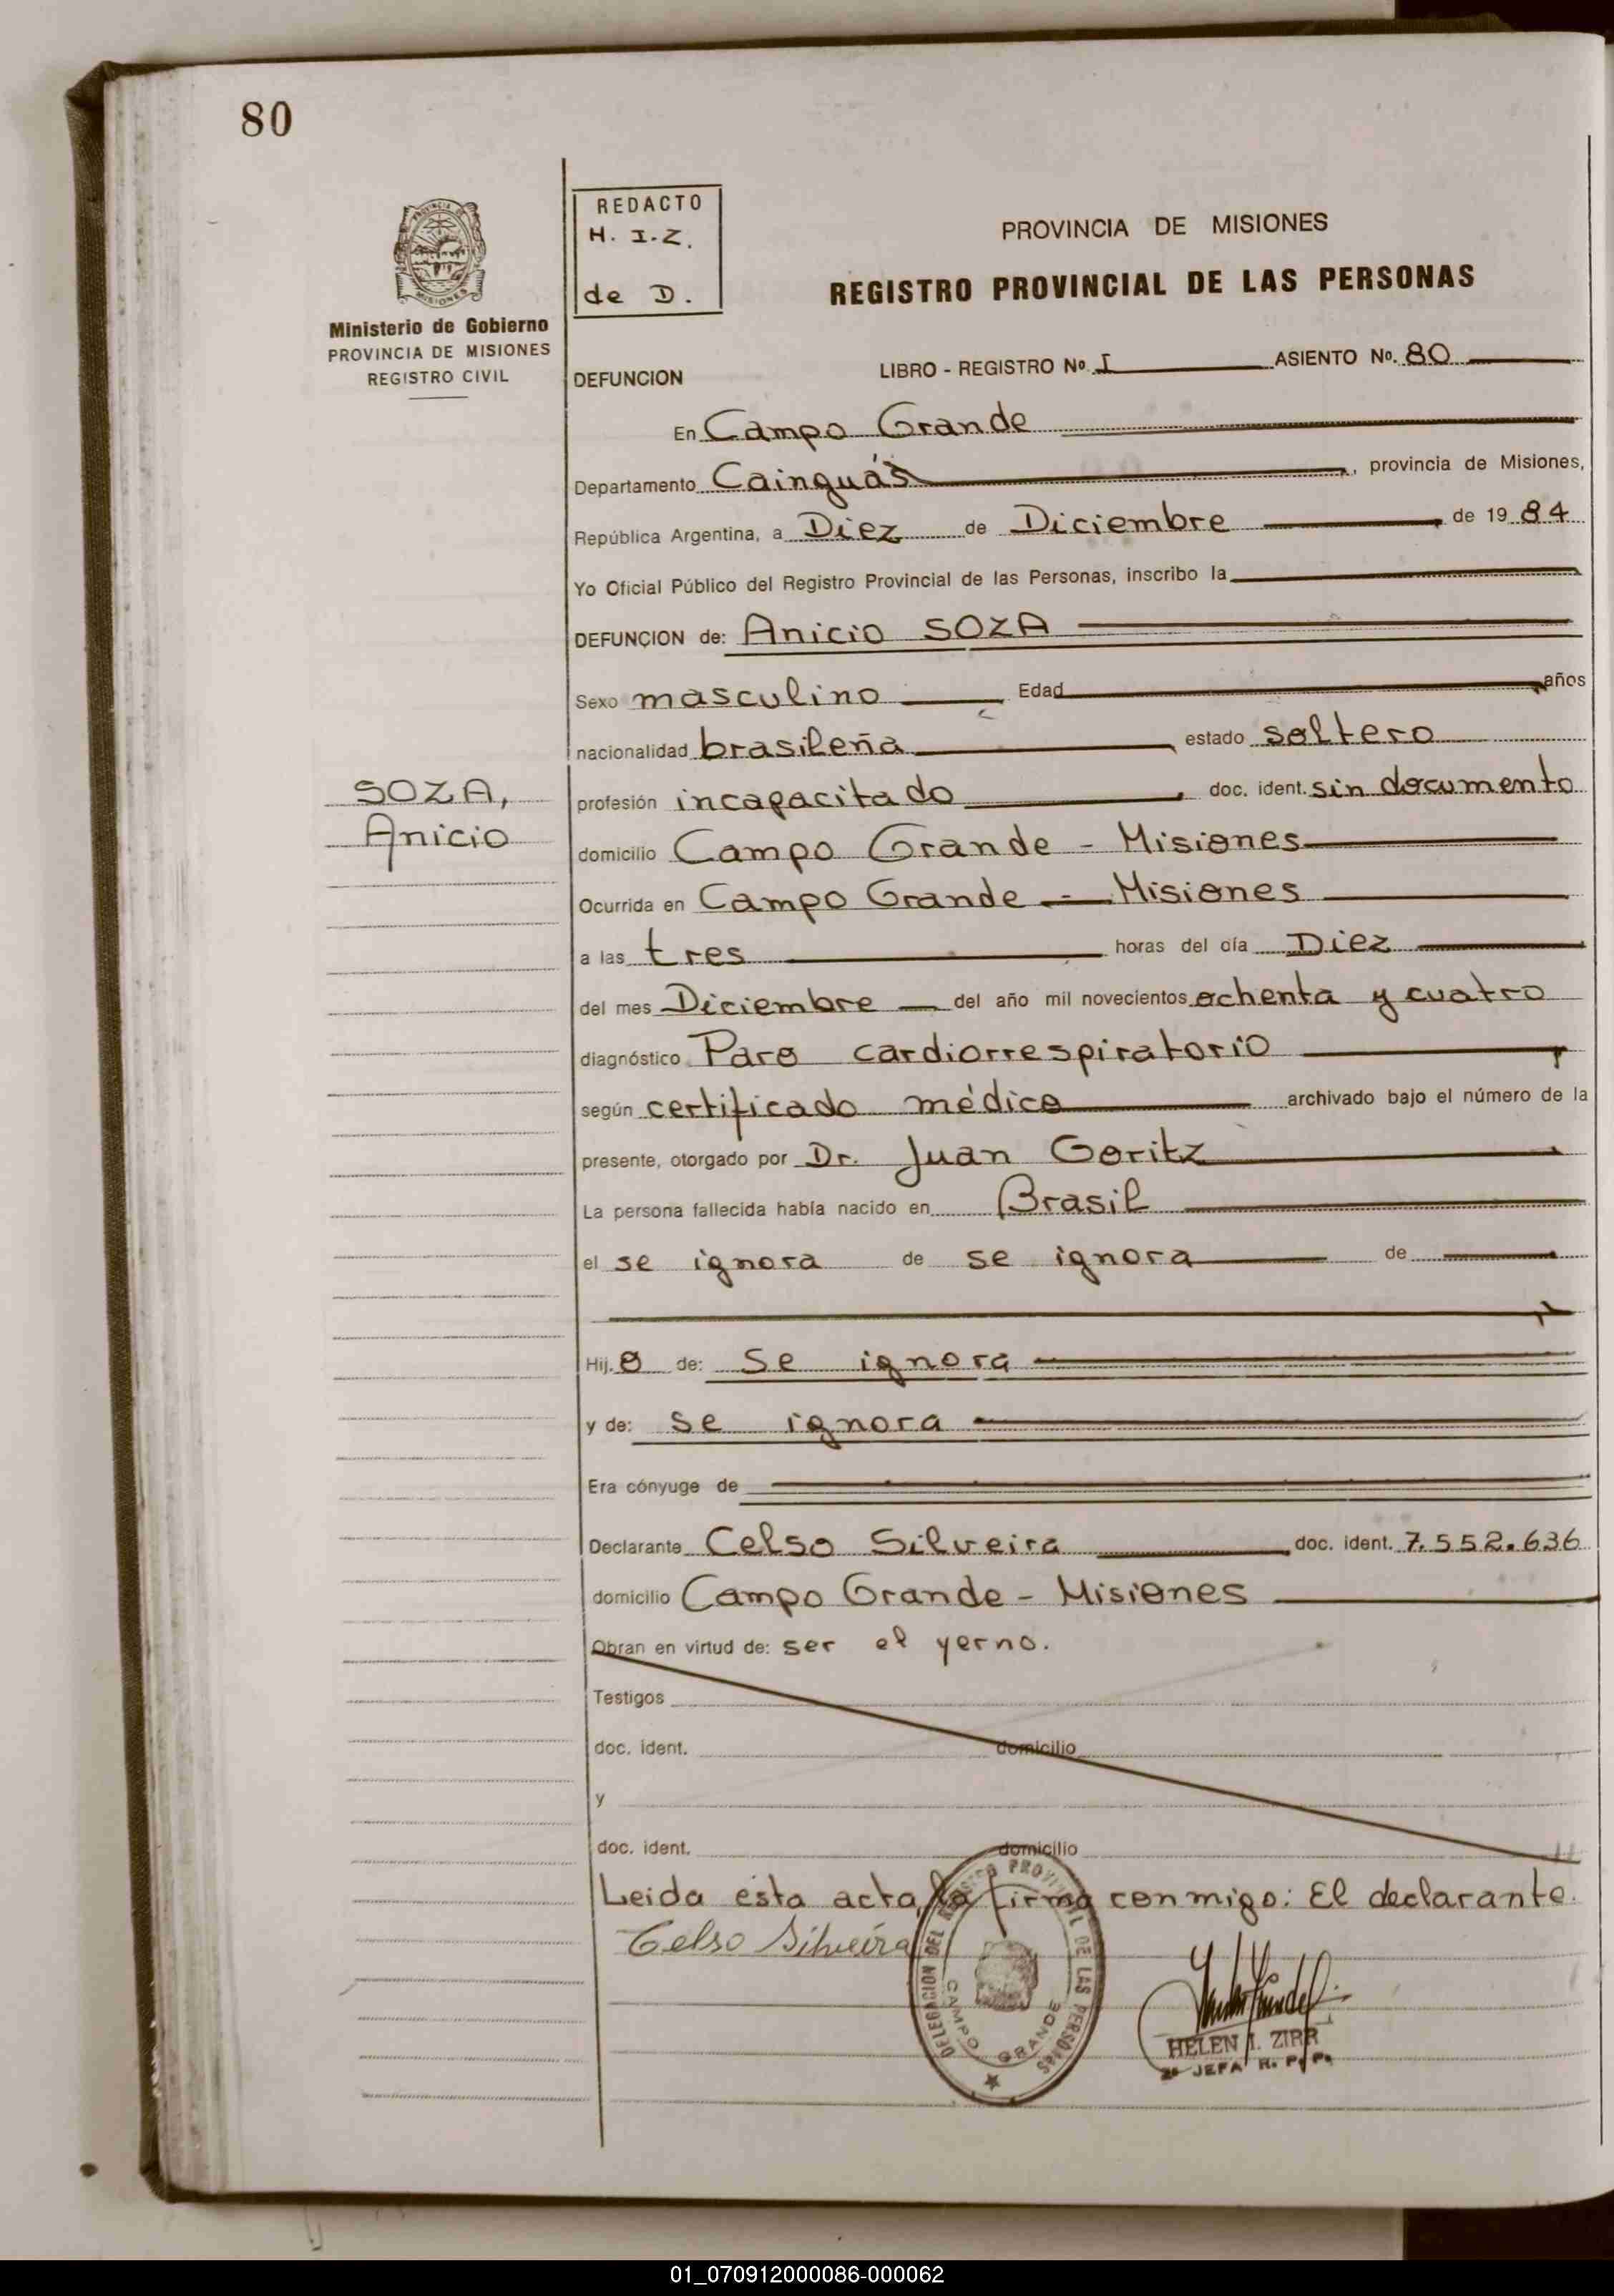 80
REDACTO
H. I. Z.
de D.
PROVINCIA DE MISIONES
Ministerio de Gobierno
PROVINCIA DE MISIONES
REGISTRO CIVIL
PROVINCIA DE MISIONES
REGISTRO PROVINCIAL DE LAS PERSONAS
DEFUNCION LIBRO - REGISTRO Nº I ASIENTO Nº. 80
En Campo Grande
Departamento Cainguás, provincia de Misiones,
República Argentina, a Diez de Diciembre de 19 84
Yo Oficial Público del Registro Provincial de las Personas, inscribo la
DEFUNCION de: Anicio SOZA
Sexo masculino Edad años
nacionalidad brasileña estado soltero
SOZA,
Anicio
profesión incapacitado doc. ident. sin documento
domicilio Campo Grande - Misiones
Ocurrida en Campo Grande - Misiones
a las tres horas del día Diez
del mes Diciembre del año mil novecientos ochenta y cuatro
diagnóstico Paro cardiorrespiratorio
según certificado médico archivado bajo el número de la
presente, otorgado por Dr. Juan Goritz
La persona fallecida había nacido en Brasil
el se ignora de se ignora de
Hij. o de: se ignora
y de: se ignora
Era cónyuge de
Declarante Celso Silveira doc. ident. 7.552.636
domicilio Campo Grande - Misiones
Obran en virtud de: ser el yerno.
Testigos
doc. ident. domicilio
y
doc. ident. domicilio
Leida esta acta, la firma conmigo: El declarante.
Celso Silveira
DELEGACION DEL REGISTRO PROVINCIAL DE LAS PERSONAS
CAMPO GRANDE
HELEN I. ZIRR
JEFA R. P. P.
01_070912000086-000062